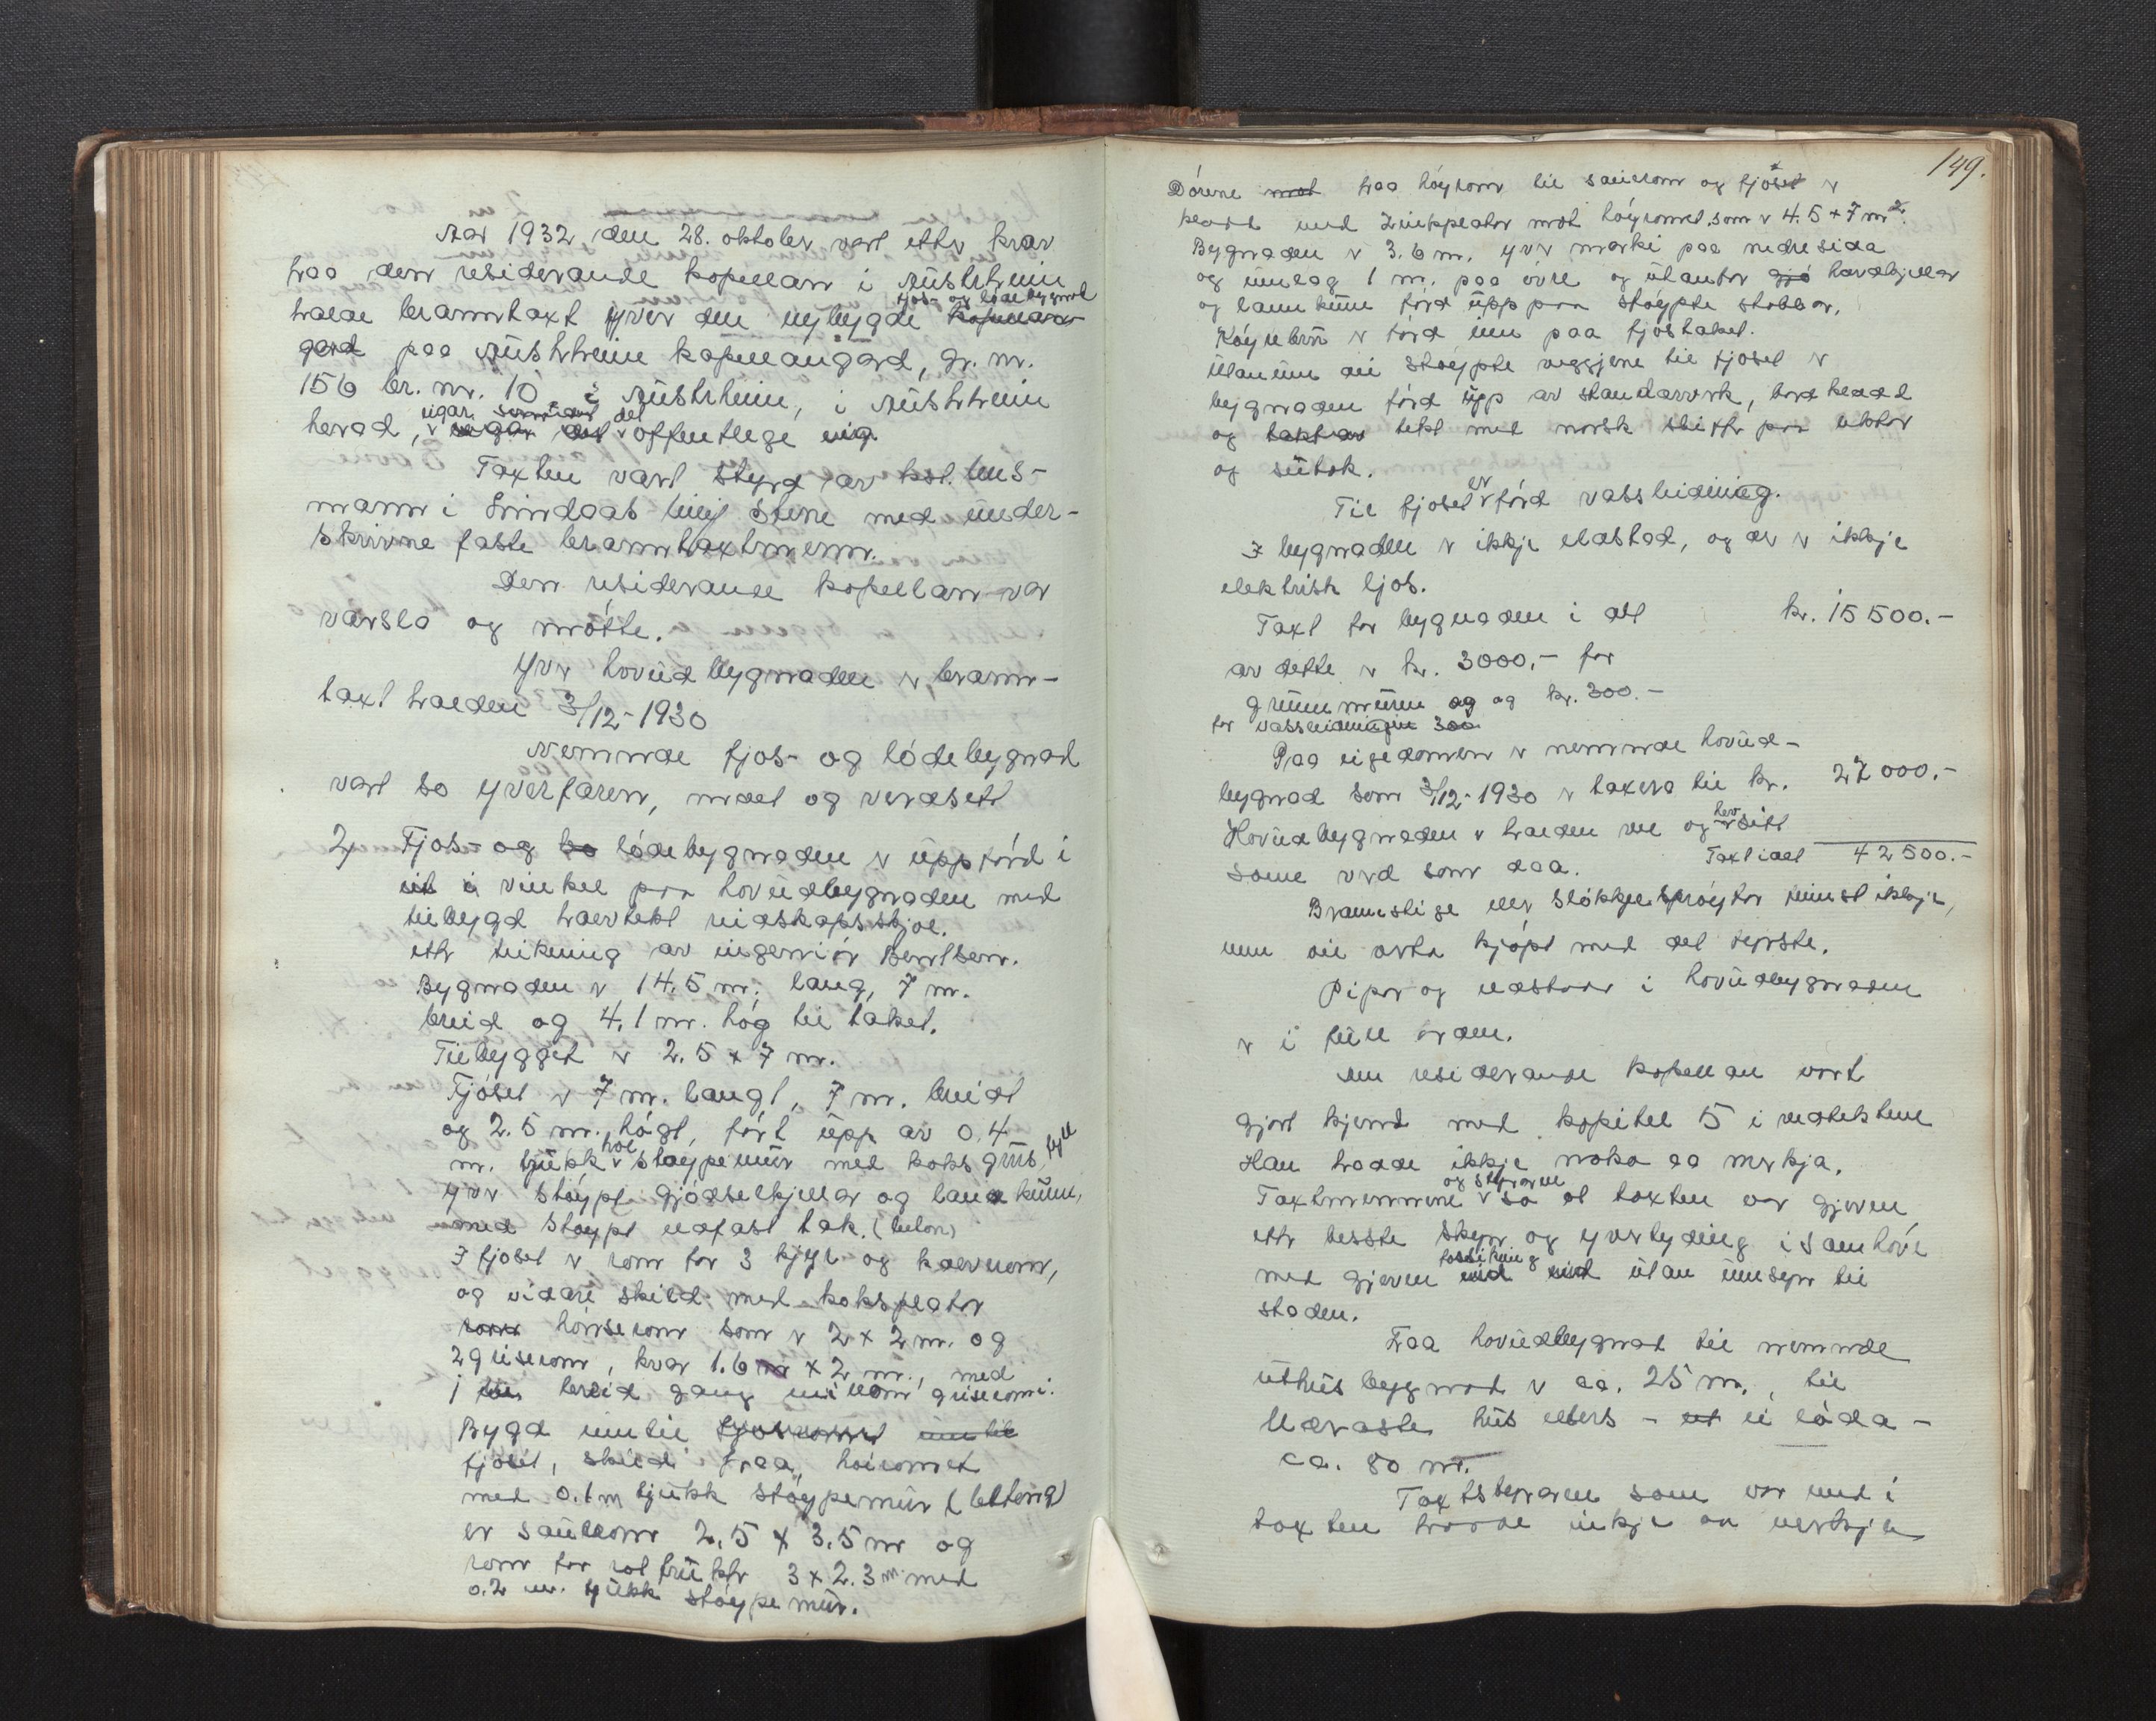 Aar 1932 den 28. oktober vart etter krav
fraa den residerande kapellan i Austrheim
halde branntaxt yver den nybygde fjos- og lødebygnad
paa Austrheim kapellangard, gr. nr.
156 br. nr. 10 i Austrheim, i Austrheim
herad, eigar det offentlege
Taxten vart styrd av kst. lens-
mann i Lindaas med under-
skrivne faste branntaxtmenn.
Den residerande kapellan var
varsla og møtte.
Yver hovudbygnaden er brann-
taxt halden 3/12-1930
Nemnde fjos- og lødebygnad
vart so yverfaren, mælt og verdsett
2) Fjos- og lødebygnaden er uppførd i
vinkel paa hovudbygnaden med
tilbygd reidskapsskjol.
etter teikning av ingeniør Berntsen.
Bygnaden er 14.5 m. lang, 7 m.
breid og 4.1 m. høg til taket.
Tilbygget er 2.5 x 7 m.
Fjøset er 7 m. langt, 7 m. breidt
og 2.5 m. høgt, ført upp av 0.4
m. tjukk hol støypemur med koksgrus fyll
yver støypt gjødselkjellar og land kum,
med støypt eldfast tak. (beton)
I fjoset er rom for 3 kyr og kalverom,
og vidare skild med koksplator
hønserom som er 2 x 2 m. og
2 griserom, kvar 1.6 x 2 m., med
1 m breid gang millom griseromi.
Bygd inntil
fjoset, skild fraa høiromet
med 0.1 m tjukk støypemur (lettong)
er sauerom 2.5 x 3.5 m og
rom for rotfrukter 3 x 2.3 m med
0.2 m. tjukk støypemur.
149.
Dørene fraa høyrom til sauerom og fjøset er
kledd med zinkplator mot høyromet som er 4.5 x 7 m².
Bygnaden er 3.6 m. yver marki paa nedresida
og umlag 1 m. paa øvre og utanfor landkjellar
og landkum førd upp paa støypte stabbar.
Køyrebru er førd inn paa fjostaket.
Utanum dei støypte veggjene til fjoset er
bygnaden førd upp av standarverk, bordkledd
og tekt med norsk skifer paa lekter
og sutak.
Til fjoset er førd vassleidning.
I bygnaden er ikkje eldstad, og der er ikkje
elektrisk ljos.
Taxt for bygnaden i alt kr. 15 500.-
av dette er kr. 3000.- for
grunnmuren og kr. 300.-
for vassleidningen
Paa eigedomen er nemnde hovud-
bygnad som 3/12-1930 er taxera til kr. 27 000.-
Hovudbygnaden er halden vel og hev sitt
same verd som daa. Taxt i alt 42 500.-
Brannstige eller sløkkjesprøytor finst ikkje,
men dei verta kjøpt med det fyrste.
Pipor og eldstader i hovudbygnaden
er i full orden.
Den residerande kapellan vart
gjort kjend med kapitel 5 i vedtektene
Han hadde ikkje noko aa merkja.
Taxtmennene og styraren sa at taxten var gjeven
etter beste skyn og yvertyding i samhøve
med gjeven forsikring utan umsyn til
staden.
Fraa hovudbygnad til nemnde
uthusbygnad er ca. 25 m., til
næraste hus elles - ei løda -
ca. 80 m.
Taxtstyraren som var med i
taxten hadde inkje aa merkja